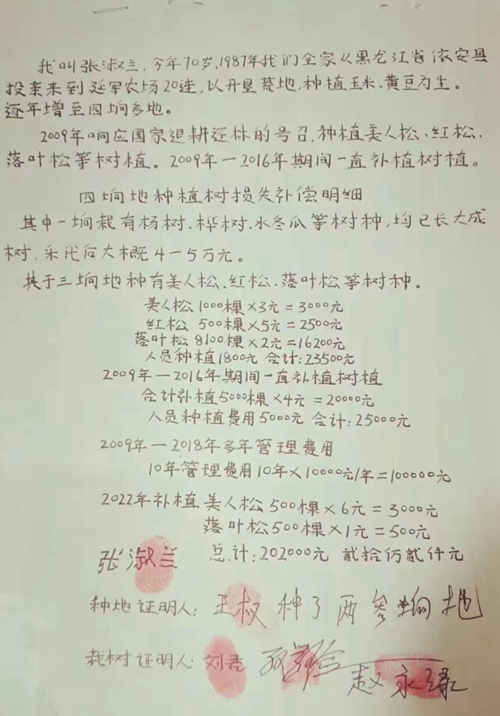 我叫张淑兰，今年70岁，1987年我们全家从黑龙江省依安县
投亲来到延军农场20连，以开垦荒地，种植玉米、黄豆为生。
逐年增至四垧多地。
2009年响应国家退耕还林的号召，种植美人松、红松、
落叶松等树植。2009年—2016年期间一直补植树植。
四垧地种植树损失补偿明细
其中一垧栽有杨树、桦树、水冬瓜等树种，均已长大成
树，采伐后大概4—5万元。
其于三垧地种有美人松、红松、落叶松等树种。
美人松1000棵×3元=3000元
红松 500棵×5元=2500元
落叶松8100棵×2元=16200元
人员种植1800元 合计：23500元
2009年—2016年期间一直补植树植
合计补植5000棵×4元=20000元
人员种植费用5000元 合计：25000元
2009年—2018年多年管理费用
10年管理费用10年×10000元/年=100000元
2022年补植美人松500棵×6元=3000元
落叶松500棵×1元=500元
张淑兰 总计：202000元 贰拾伍贰仟元
种地证明人：王权 种了两叁垧地
栽树证明人：刘 赵永